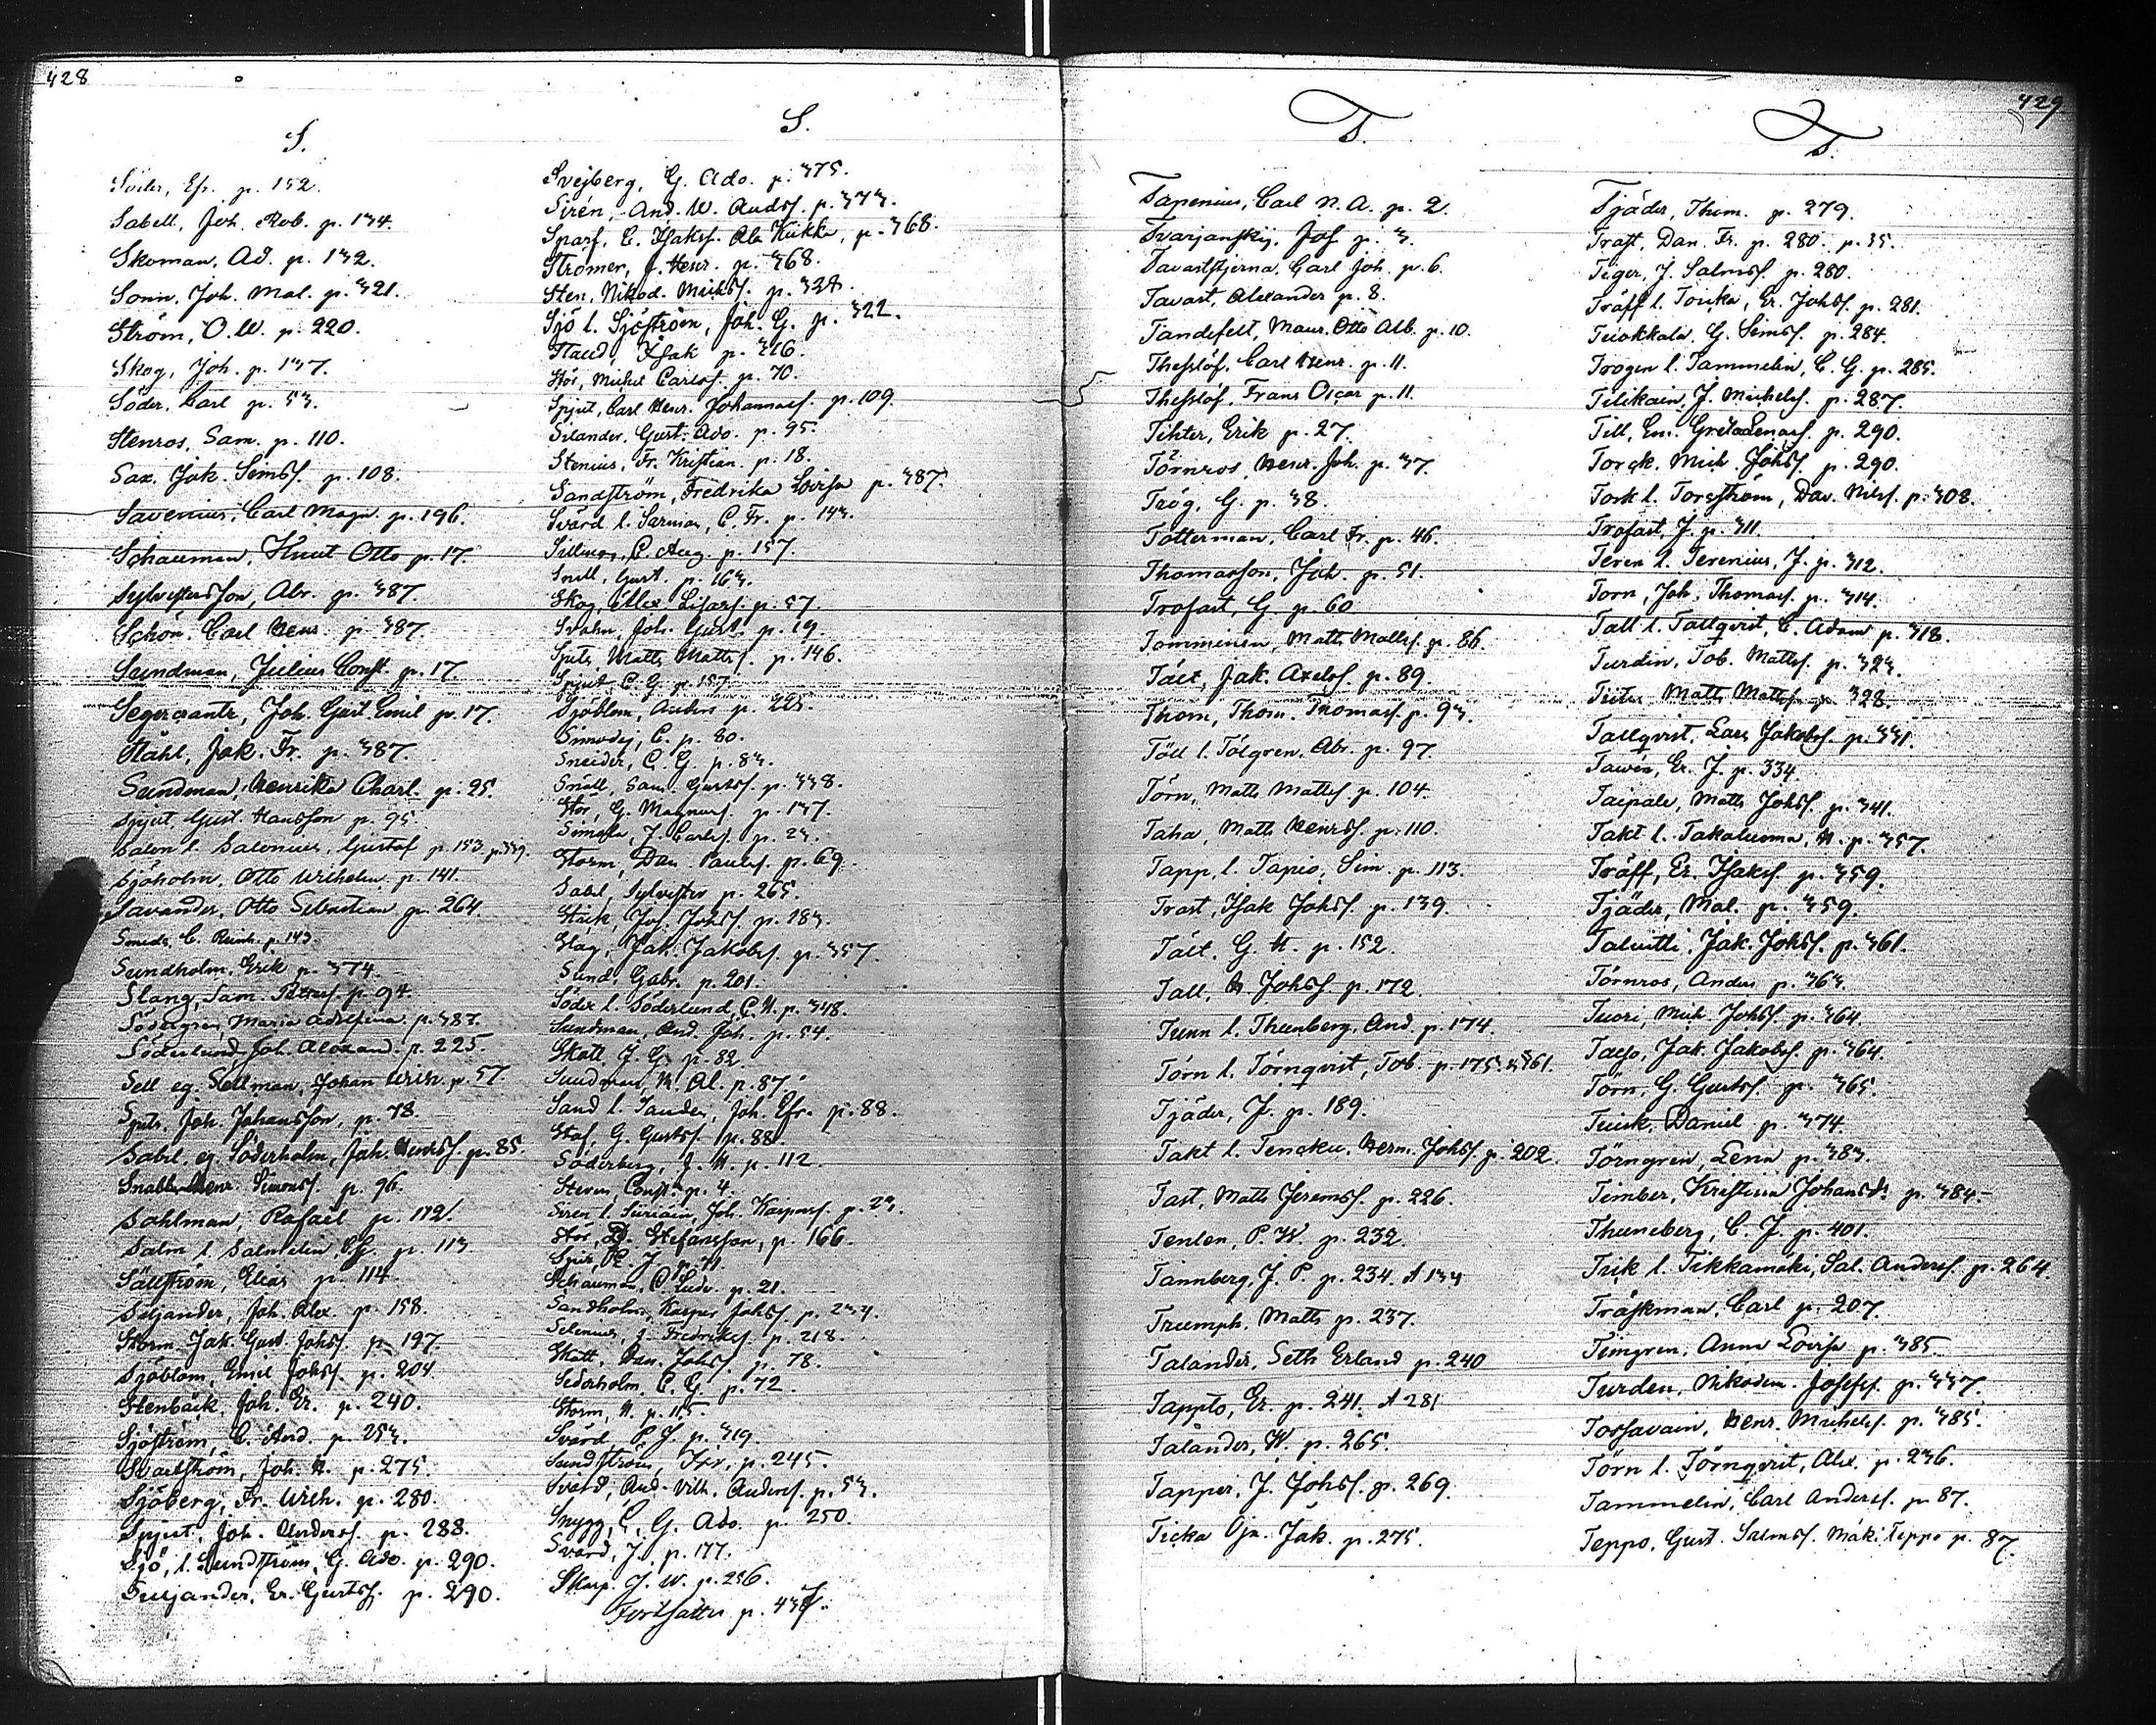 428
S.
Söder, Efr. p. 152.
Sabell, Joh. Rob. p. 134.
Skoman, Ad. p. 132.
Sonn, Joh. Mal. p. 321.
Ström, O. W. p. 220.
Skog, Joh. p. 137.
Söder, Carl p. 53.
Stenros, Sam. p. 110.
Sax, Jak. Simsf. p. 108.
Savenius, Carl Magn. p. 196.
Schauman, Knut Otto p. 17.
Sylvestersson, Abr. p. 387.
Schön, Carl Henr. p. 387.
Sundman, Julius Const. p. 17.
Segercrantz, Joh. Gust. Emil p. 17.
Ståhl, Jak. Fr. p. 387.
Sundman, Henrika Charl. p. 25.
Spjut, Gust. Hansson p. 95.
Salen l. Salenius, Gustaf p. 153. p. 339.
Sjöholm, Otto Wilhelm p. 141.
Savander, Otto Sebastian p. 264.
Smeds, C. Reinh. p. 143.
Sundholm, Erik p. 374.
Slang, Sam. p. 94.
Södergren, Maria Adolfina p. 387.
Söderlund, Joh. Alexand. p. 225.
Sell eg. Sellman, Johan Wilh. p. 57.
Spets, Joh. Johansson, p. 78.
Sabel, eg. Söderholm, Joh. Henrsf. p. 85.
Snabb, Henr. Simonsf. p. 96.
Sohlman, Rafael p. 112.
Salm l. Salmelin p. 113.
Sällström, Elias p. 114.
Siljander, Joh. Alex. p. 158.
Storm, Jak. Gust. Johsf. p. 197.
Sjöblom, Emil Johsf. p. 204.
Stenbäck, Joh. Er. p. 240.
Sjöström, C. And. p. 253.
Svartström, Joh. H. p. 275.
Sjöberg, Fr. Wilh. p. 280.
Spjut, Joh. Andersf. p. 288.
Sjö, l. Sundström, G. Ado. p. 290.
Siljander, Er. Gustsf. p. 290.
S.
Svejberg, G. Ado. p. 375.
Sirén, And. W. Andsf. p. 373.
Sparf, C. Isaksf. Ala Kiikka, p. 368.
Strömer, J. Henr. p. 368.
Sten, Nikod. Michsf. p. 328.
Sjö l. Sjöström, Joh. G. p. 322.
Staud, Isak p. 316.
Stör, Michel Carlsf. p. 70.
Spjut, Carl Henr. Johannesf. p. 109.
Silander, Gust. Ado. p. 95.
Stenius, Fr. Kristian. p. 18.
Sandström, Fredrika Lovisa p. 387.
Svärd l. Sarman, C. Fr. p. 143.
C. Aug. p. 157.
Snell, Gust. p. 163.
Skog, p. 57.
Svahn, Joh. Gust. p. 19.
Spets, Matts Mattsf. p. 146.
Spjut, C. G. p. 157.
Sjöblom, Anders p. 225.
C. p. 80.
Sneider, C. G. p. 83.
Snäll, Sam. Gustsf. p. 338.
Stor, G. Magnusf. p. 137.
Simola, J. Carlsf. p. 23.
Storm, Dan. Paulsf. p. 69.
Sabel, Sylvester p. 265.
Stark, Jos. Johsf. p. 183.
Slag, Jak. Jakobsf. p. 357.
Sund, Gabr. p. 201.
Söder l. Söderlund, C. H. p. 348.
Sundman, And. Joh. p. 54.
Skott, J. G. p. 82.
Sundman, H. Al. p. 87.
Sand l. Sander, Joh. Efr. p. 88.
Staf, G. Gustsf. p. 88.
Söderberg, J. H. p. 112.
Steven, Const. p. 4.
Siren l. Siriäin, Joh. Kaspersf. p. 23.
Stör, D. Stefansson, p. 166.
Schauman, C. Ludv. p. 21.
Sandholm, Kasper Johsf. p. 234.
Selenius, J. Fredriksf. p. 218.
Skatt, Dan. Johsf. p. 78.
Sederholm, C. G. p. 72.
Storm, H. p. 115.
Svärd, p. 319.
Sundström, p. 245.
Svärd, And. Vilh. Andersf. p. 53.
Snygg, C. G. Ado. p. 250.
Svärd, J. p. 177.
Skarp, J. W. p. 256.
Fortsättes p.
429
T.
Tapenius, Carl N. A. p. 2.
Tvarjanskij, Jos. p. 3.
Tavaststjerna, Carl Joh. p. 6.
Tavast, Alexander p. 8.
Tandefelt, Maur. Otto Alb. p. 10.
Thesslöf, Carl Henr. p. 11.
Thesslöf, Frans Oscar p. 11.
Tihter, Erik p. 27.
Törnros, Henr. Joh. p. 37.
Trög, G. p. 38.
Totterman, Carl Fr. p. 46.
Thomasson, Joh. p. 51.
Trofast, G. p. 60.
Tomminen, Matts Mattsf. p. 86.
Tält, Jak. Axelsf. p. 89.
Thom, Thom. Thomasf. p. 93.
Töll l. Tölgren, Abr. p. 97.
Törn, Matts Mattsf. p. 104.
Taha, Matts Henrsf. p. 110.
Tapp, l. Tapio, Sim. p. 113.
Trast, Isak Johsf. p. 139.
Tält, G. H. p. 152.
Tall, H. Johsf. p. 172.
Tunn l. Thunberg, And. p. 174.
Törn l. Törnqvist, Tob. p. 175. p. 361.
Tjäder, J. p. 189.
Takt l. Tencku, Herm. Johsf. p. 202.
Tast, Matts Jeremsf. p. 226.
Tenlen, P. W. p. 232.
Tannberg, J. P. p. 234. A 134
Triumph, Matts p. 237.
Talander, Seth Erland p. 240
Tappto, Er. p. 241. A 281
Talander, W. p. 265.
Tapper, J. Johsf. p. 269.
Ticka Oja. Jak. p. 275.
T.
Tjäder, Thom. p. 279.
Trast, Dan. Fr. p. 280. p. 35.
Tiger, J. Salmsf. p. 280.
Träff l. Touka, Er. Johsf. p. 281.
Tuokkola, G. Simsf. p. 284.
Trogen l. Tammelin, C. G. p. 285.
Tilikain, J. Michelsf. p. 287.
Till, Em. Gretalenasf. p. 290.
Torck, Mich. Johsf. p. 290.
Tork l. Torsström, Dav. Nilsf. p. 308.
Trofast, J. p. 311.
Teren l. Terenius, J. p. 312.
Torn, Joh. Thomasf. p. 314.
Tall l. Tallqvist, C. Adam p. 318.
Turdin, Tob. Mattsf. p. 323.
Matts Mattsf. p. 328.
Tallqvist, Lars Jakobsf. p. 331.
Tawén, Er. J. p. 334
Taipale, Matts Johsf. p. 341.
Takt l. Takaluoma, H. p. 357.
Träff, Er. Isaksf. p. 359.
Tjäder, Mal. p. 359.
Talvitti, Jak. Johsf. p. 361.
Törnros, Anders p. 363.
Tuori, Mich. Johsf. p. 364.
Jak. Jakobsf. p. 364.
Törn, G. Gustsf. p. 365.
Daniel p. 374.
Törngren, Lena p. 383.
Timber, Kristina Johansdr p. 384.
Thuneberg, C. J. p. 401.
Trik l. Tikkamäki, Sal. Andersf. p. 264.
Träskman, Carl p. 207.
Timgren, Anna Lovisa p. 385.
Turden, Nikodem. Josefsf. p. 337.
Tossavain, Henr. Michelsf. p. 385.
Törn l. Törnqvist, Alex. p. 236.
Tammelin, Carl Andersf. p. 87.
Teppo, Gust. Salmsf. Mäki Teppo p. 87.